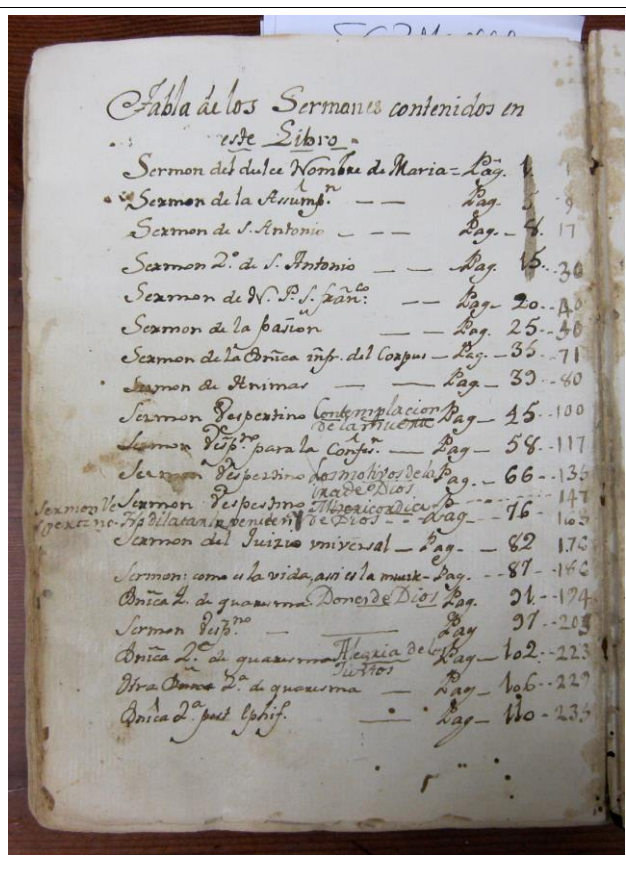 Tabla de los Sermones contenidos en
este Libro.
Sermon del dulce Nombre de Maria = Pag. 1.
Sermon de la Assump.n — — Pag. 5 9
Sermon de S. Antonio — — Pag. — 8. 17
Sermon 2.º de S. Antonio — — Pag. 15. 30
Sermon de N. P. S. Fran.co — — Pag. 20. 40
Sermon de la pasion — — Pag. 25. 50
Sermon de la Dnica infr. del Corpus — Pag. — 35. 71
Sermon de Animas — — Pag. — 39. 80
Sermon Vespertino Contemplacion de la muerte Pag — 45. 100
Sermon Vesp.no para la Confes.n — Pag — 58. 117
Sermon Vespertino Los motivos de la ira de Dios Pag. — 66. 135
Sermon Vespertino Misericordia de Dios Pag — 76 147
Sermon Vespertino. dilatar 163
Sermon del Juizio vniversal — Pag. — 82 176
Sermon: como es la vida, asi es la muerte — Pag. — 87 186
Dnica 1. de quaresma Dones de Dios Pag. 91 194
Sermon Vesp.no — — Pag 97 205
Dnica 2.a de quaresma Alegria de los Justos Pag — 102. 223
Otra Dnica 2.a de quaresma — Pag — 106. 229
Dnica 2.a post Ephif. — Pag — 110 235